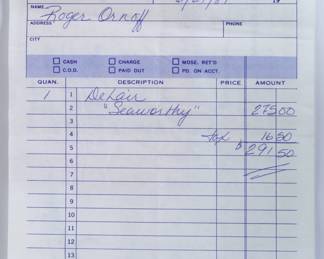 NAME Roger Ornoff
ADDRESS PHONE
CITY
CASH CHARGE MDSE. RET'D
C.O.D. PAID OUT PD. ON ACCT.
QUAN. DESCRIPTION PRICE AMOUNT
1 1 DeLair
2 "Seaworthy" 275 00
3
4 tax 16 50
5 $ 291 50
6
7
8
9
10
11
12
13